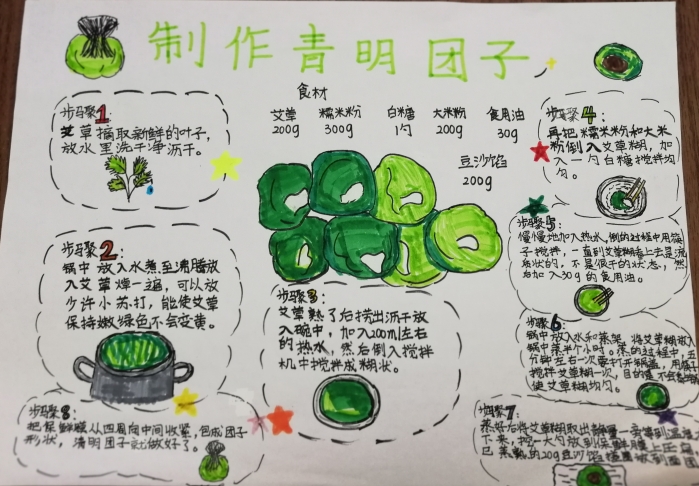 制作青明团子
食材
艾草 糯米粉 白糖 大米粉 食用油
200g 300g 1勺 200g 30g
豆沙馅
200g
步骤1:
艾草摘取新鲜的叶子,
放水里洗干净沥干。
步骤2:
锅中放入水煮至沸腾放
入艾草焯一遍,可以放
少许小苏打,能使艾草
保持嫩绿色不会变黄。
步骤3:
艾草熟了后捞出沥干放
入碗中,加入200ml左右
的热水,然后倒入搅拌
机中搅拌成糊状。
步骤4:
再把糯米粉和大米
粉倒入艾草糊,加
入一勺白糖搅拌均
匀。
步骤5:
慢慢地加入热水,倒的过程中用筷
子搅拌,一直到艾草糊看上去是流
质状的,不是很干的状态,然
后加入30g的食用油。
步骤6:
锅中放入水和蒸架,将艾草糊放入
锅中蒸半个小时。蒸的过程中,五
分钟左右一次要打开锅盖,用筷子
搅拌艾草糊一次,目的是不会
使艾草糊均匀。
步骤7:
蒸好后将艾草糊取出
下来,挖一大勺放到保鲜膜上压
已蒸熟的20g豆沙馅
步骤8:
把保鲜膜从四周向中间收紧,包成团子
形状,清明团子就做好了。